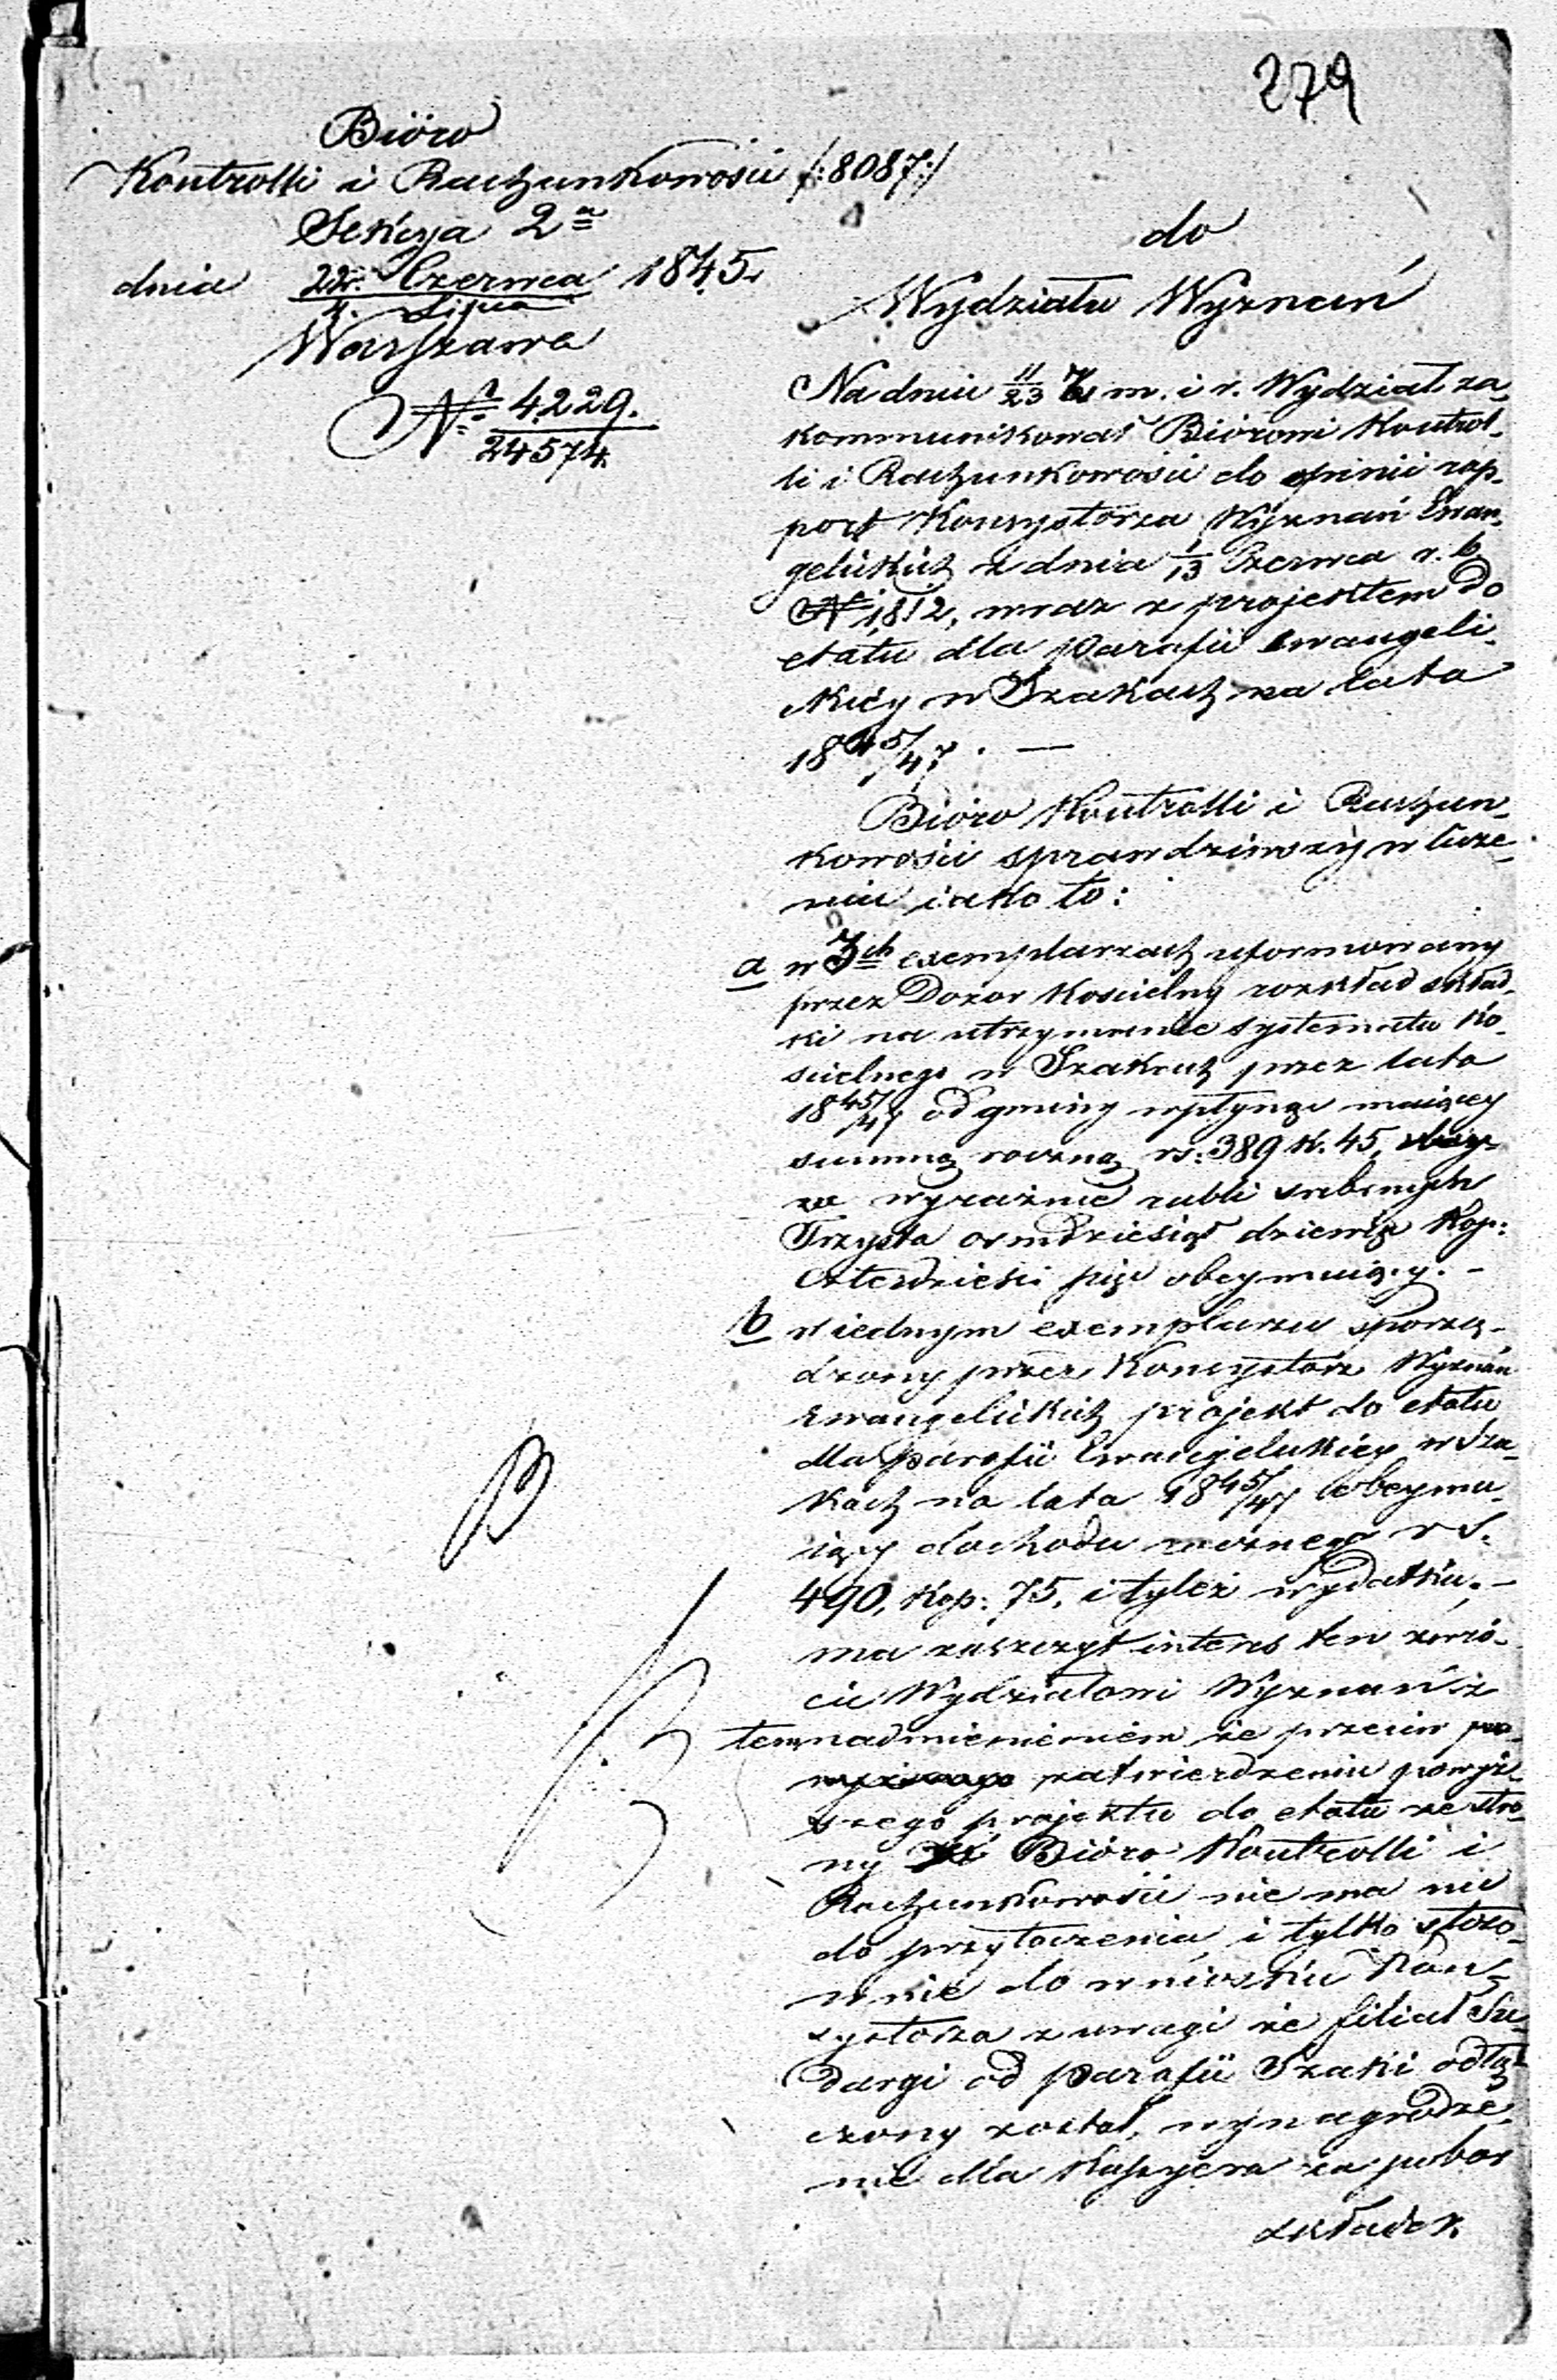 279
Bióro
Kontrolli i Rachunkowości /:8087:/
Sekcya 2a
dnia 22. Czerwca 1845.
4. Lipca
Warszawa
No 4229.
24574.
do
Wydziału Wyznań
Na dniu 11/23 m. i r. Wydział za-
kommunikował Biórowi Kontrol-
li i Rachunkowości do opinii rap-
port Konsystorza Wyznań Ewan-
gelickich z dnia 1/13 Czerwca r. b.
No 1812, wraz z projektem do
etatu dla parafii ewangeli-
ckiéy w Szakach na lata
1845/47. —
Bióro Kontrolli i Rachun-
kowości sprawdziwszy w łącze-
niu iako to:
a w 3ch exemplarzach uformowany
przez Dozor Kościelny rozkład skład-
ki na utrzymanie systematu ko-
ścielnego w Szakach przez lata
1845/47 od gminy wpłynąć maiącey
summę roczną rs: 389 k. 45,
wyraźnie rubli srebrnych
Trzysta ośmdziesiąt dziewięć kop:
czterdzieści pięć obeymuiący. -
b w iednym exemplarzu sporzą-
dzony przez Konsystorz Wyznań
Ewangelickich projekt do etatu
dla parafii Ewangelickiey w Sza-
kach na lata 1845/47 obeymu-
iący dochodu rocznego rs.
490, kop: 75, i tyleż wydatku, -
ma zaszczyt interes ten zwró-
cić Wydziałowi Wyznań z
tem nadmienieniem że przeciw
zatwierdzeniu powyż-
szego projektu do etatu ze stro-
ny Bióro Kontrolli i
Rachunkowości nie ma nic
do przytoczenia, i tylko stoso-
wnie do wniosku Kon-
systorza z uwagi że filiał Su-
dargi od parafii Szaki odłą-
czony został, wynagrodze-
nie dla Kassyera za pobor
składek.